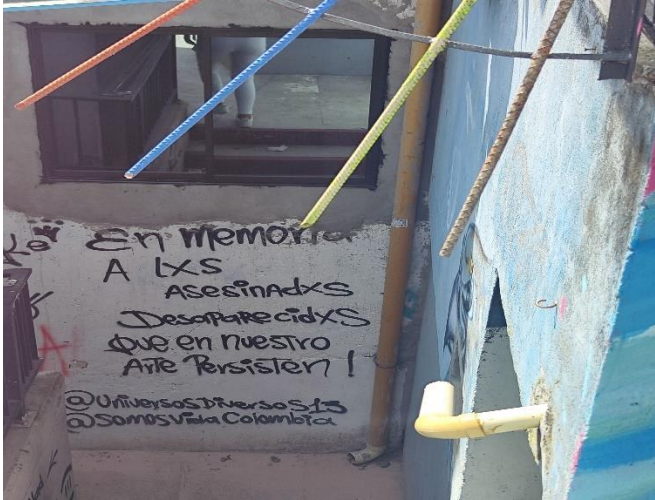 Ke
En memoria
A lxs
AsesinAdxs
DesapArecidxs
Que en nuestro
Arte Persisten !
@UniversosDiversos13
@SomosVidaColombia